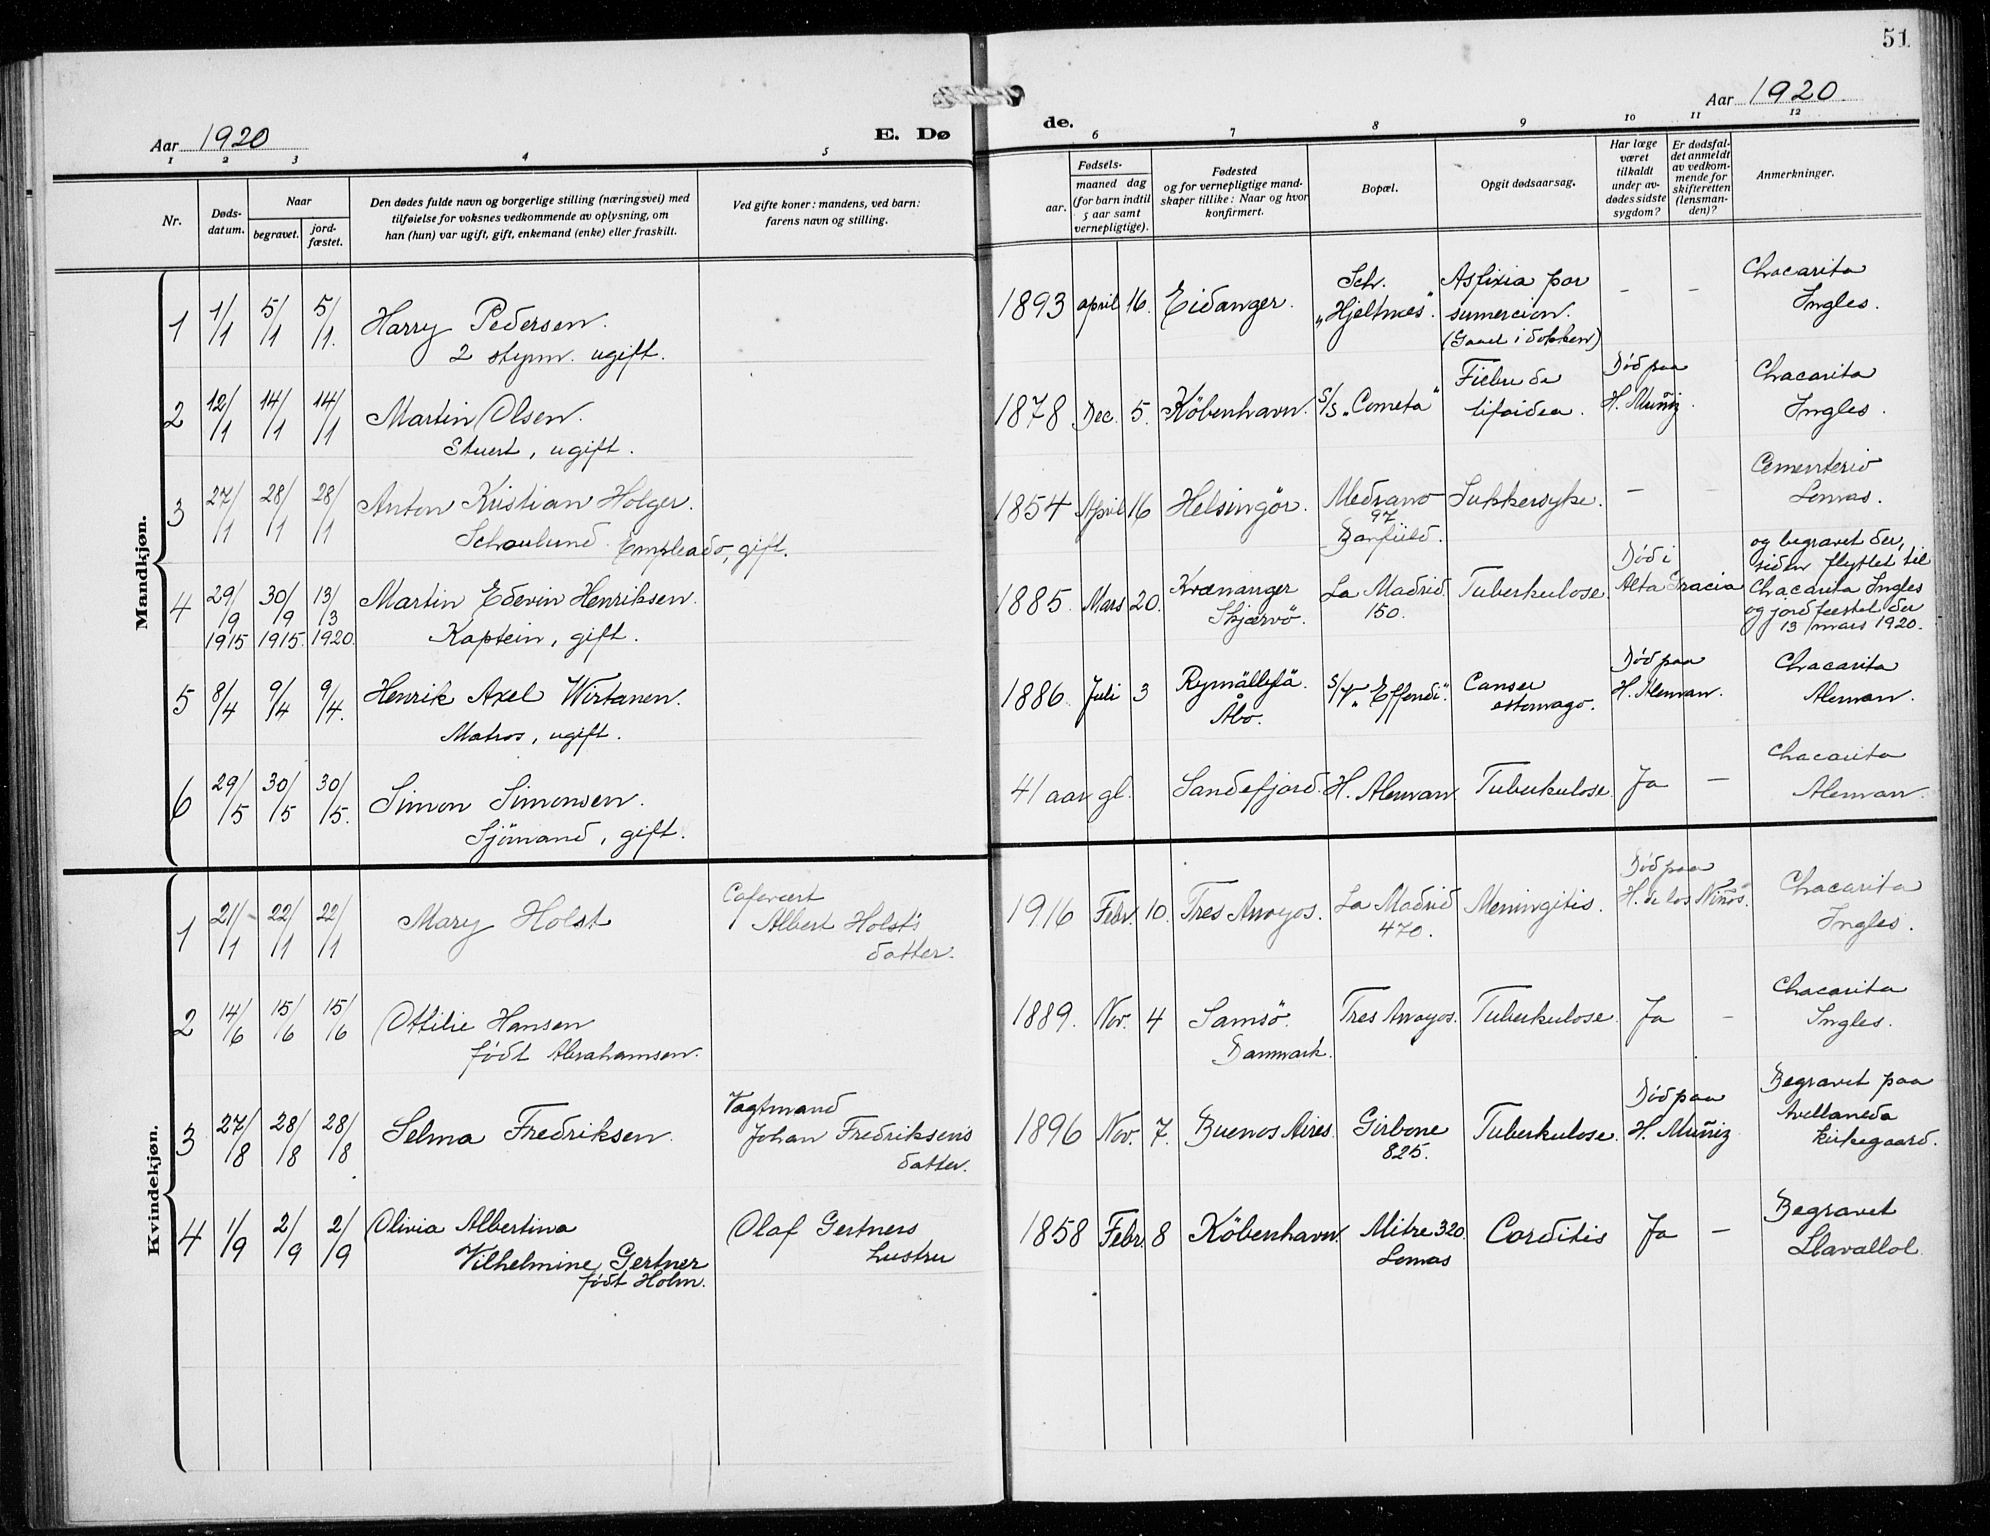 51
Aar 1920
E. Dø
de.
Aar 1920
1 2 3 4 5
6 7 8 9 10 11 12
Nr.
Døds-
datum.
Naar
begravet.
jord-
fæstet.
Den dødes fulde navn og borgerlige stilling (næringsvei) med
tilføielse for voksnes vedkommende av oplysning, om
han (hun) var ugift, gift, enkemand (enke) eller fraskilt.
Ved gifte koner: mandens, ved barn:
farens navn og stilling.
Fødsels-
aar.
maaned dag
(for barn indtil
5 aar samt
vernepligtige).
Fødested
og for vernepligtige mand-
skaper tillike: Naar og hvor
konfirmert.
Bopæl.
Opgit dødsaarsag.
Har læge
været
tilkaldt
under av-
dødes sidste
sygdom?
Er dødsfal-
det anmeldt
av vedkom-
mende for
skifteretten
(lensman-
den)?
Anmerkninger.
Mandkjøn.
1 1/1 5/1 5/1. Harry Pedersen.
2 styrm. ugift.
1893 april 16. Eidanger.
Sch.
"Hjeltnes".
Asfixia por
sumercion.
- -
Chacarita
Ingles.
2 12/1 14/1 14/1 Martin Olsen.
Stuert, ugift.
1878 Dec. 5. København. S/S "Cometa"
Fiebre de
tifoidea.
Død paa
H. Muñiz.
Chacarita
Ingles.
3 27/1 28/1 28/1 Anton Kristian Holger
Empleado, gift.
1854 April 16 Helsingør.
Medrano
97
Banfield.
Sukkersyke.
-
Cementerio
Lomas.
4 29/9 1915 30/9 1915. 13/3 1920. Martin Edevin Henriksen.
Kaptein, gift.
1885. Mars 20.
Kvænanger
Skjærvö.
La Madrid
150.
Tuberkulose.
Død i
Alta Gracia
og begravet der,
siden flyttet til
Chacarita Ingles
og jordfæstet der
13 mars 1920.
5 8/4 9/4 9/4. Henrik Axel Wirtanen.
Matros, ugift.
1886. Juli 3
Åbo.
S/V "Effendi".
Canser
estomago.
Død paa
H. Aleman.
Chacarita
Aleman.
6 29/5 30/5 30/5. Simon Simonsen.
Sjömand, gift.
41 aar gl. Sandefjord. H. Aleman Tuberkulose. Ja -
Chacarita
Aleman.
Kvindekjøn.
1 21/1 22/1 22/1 Mary Holst
Cafevært
Albert Holst's
datter.
1916 Febr. 10. Tres Arroyos.
La Madrid
470.
Meningitis.
Død paa
H. de los Niños.
Chacarita
Ingles.
2 14/6 15/6 15/6 Ottilie Hansen
født Abrahamsen.
1889. Nov. 4 Samsö.
Danmark.
Tres Arroyos. Tuberkulose. Ja -
Chacarita
Ingles.
3 27/8 28/8 28/8 Selma Fredriksen.
Vagtmand
Johan Fredriksens
datter.
1896 Nov. 7. Buenos Aires.
Girbone
825.
Tuberkulose.
Død paa
H. Muñiz
Begravet paa
Avellaneda
kirkegaard.
4 1/9 2/9 2/9 Olivia Albertina
Vilhelmine Gertner
født Holm.
Olaf Gertners
hustru
1858 Febr. 8 København.
Mitre 320.
Lomas
Carditis Ja -
Begravet
Llavallol.